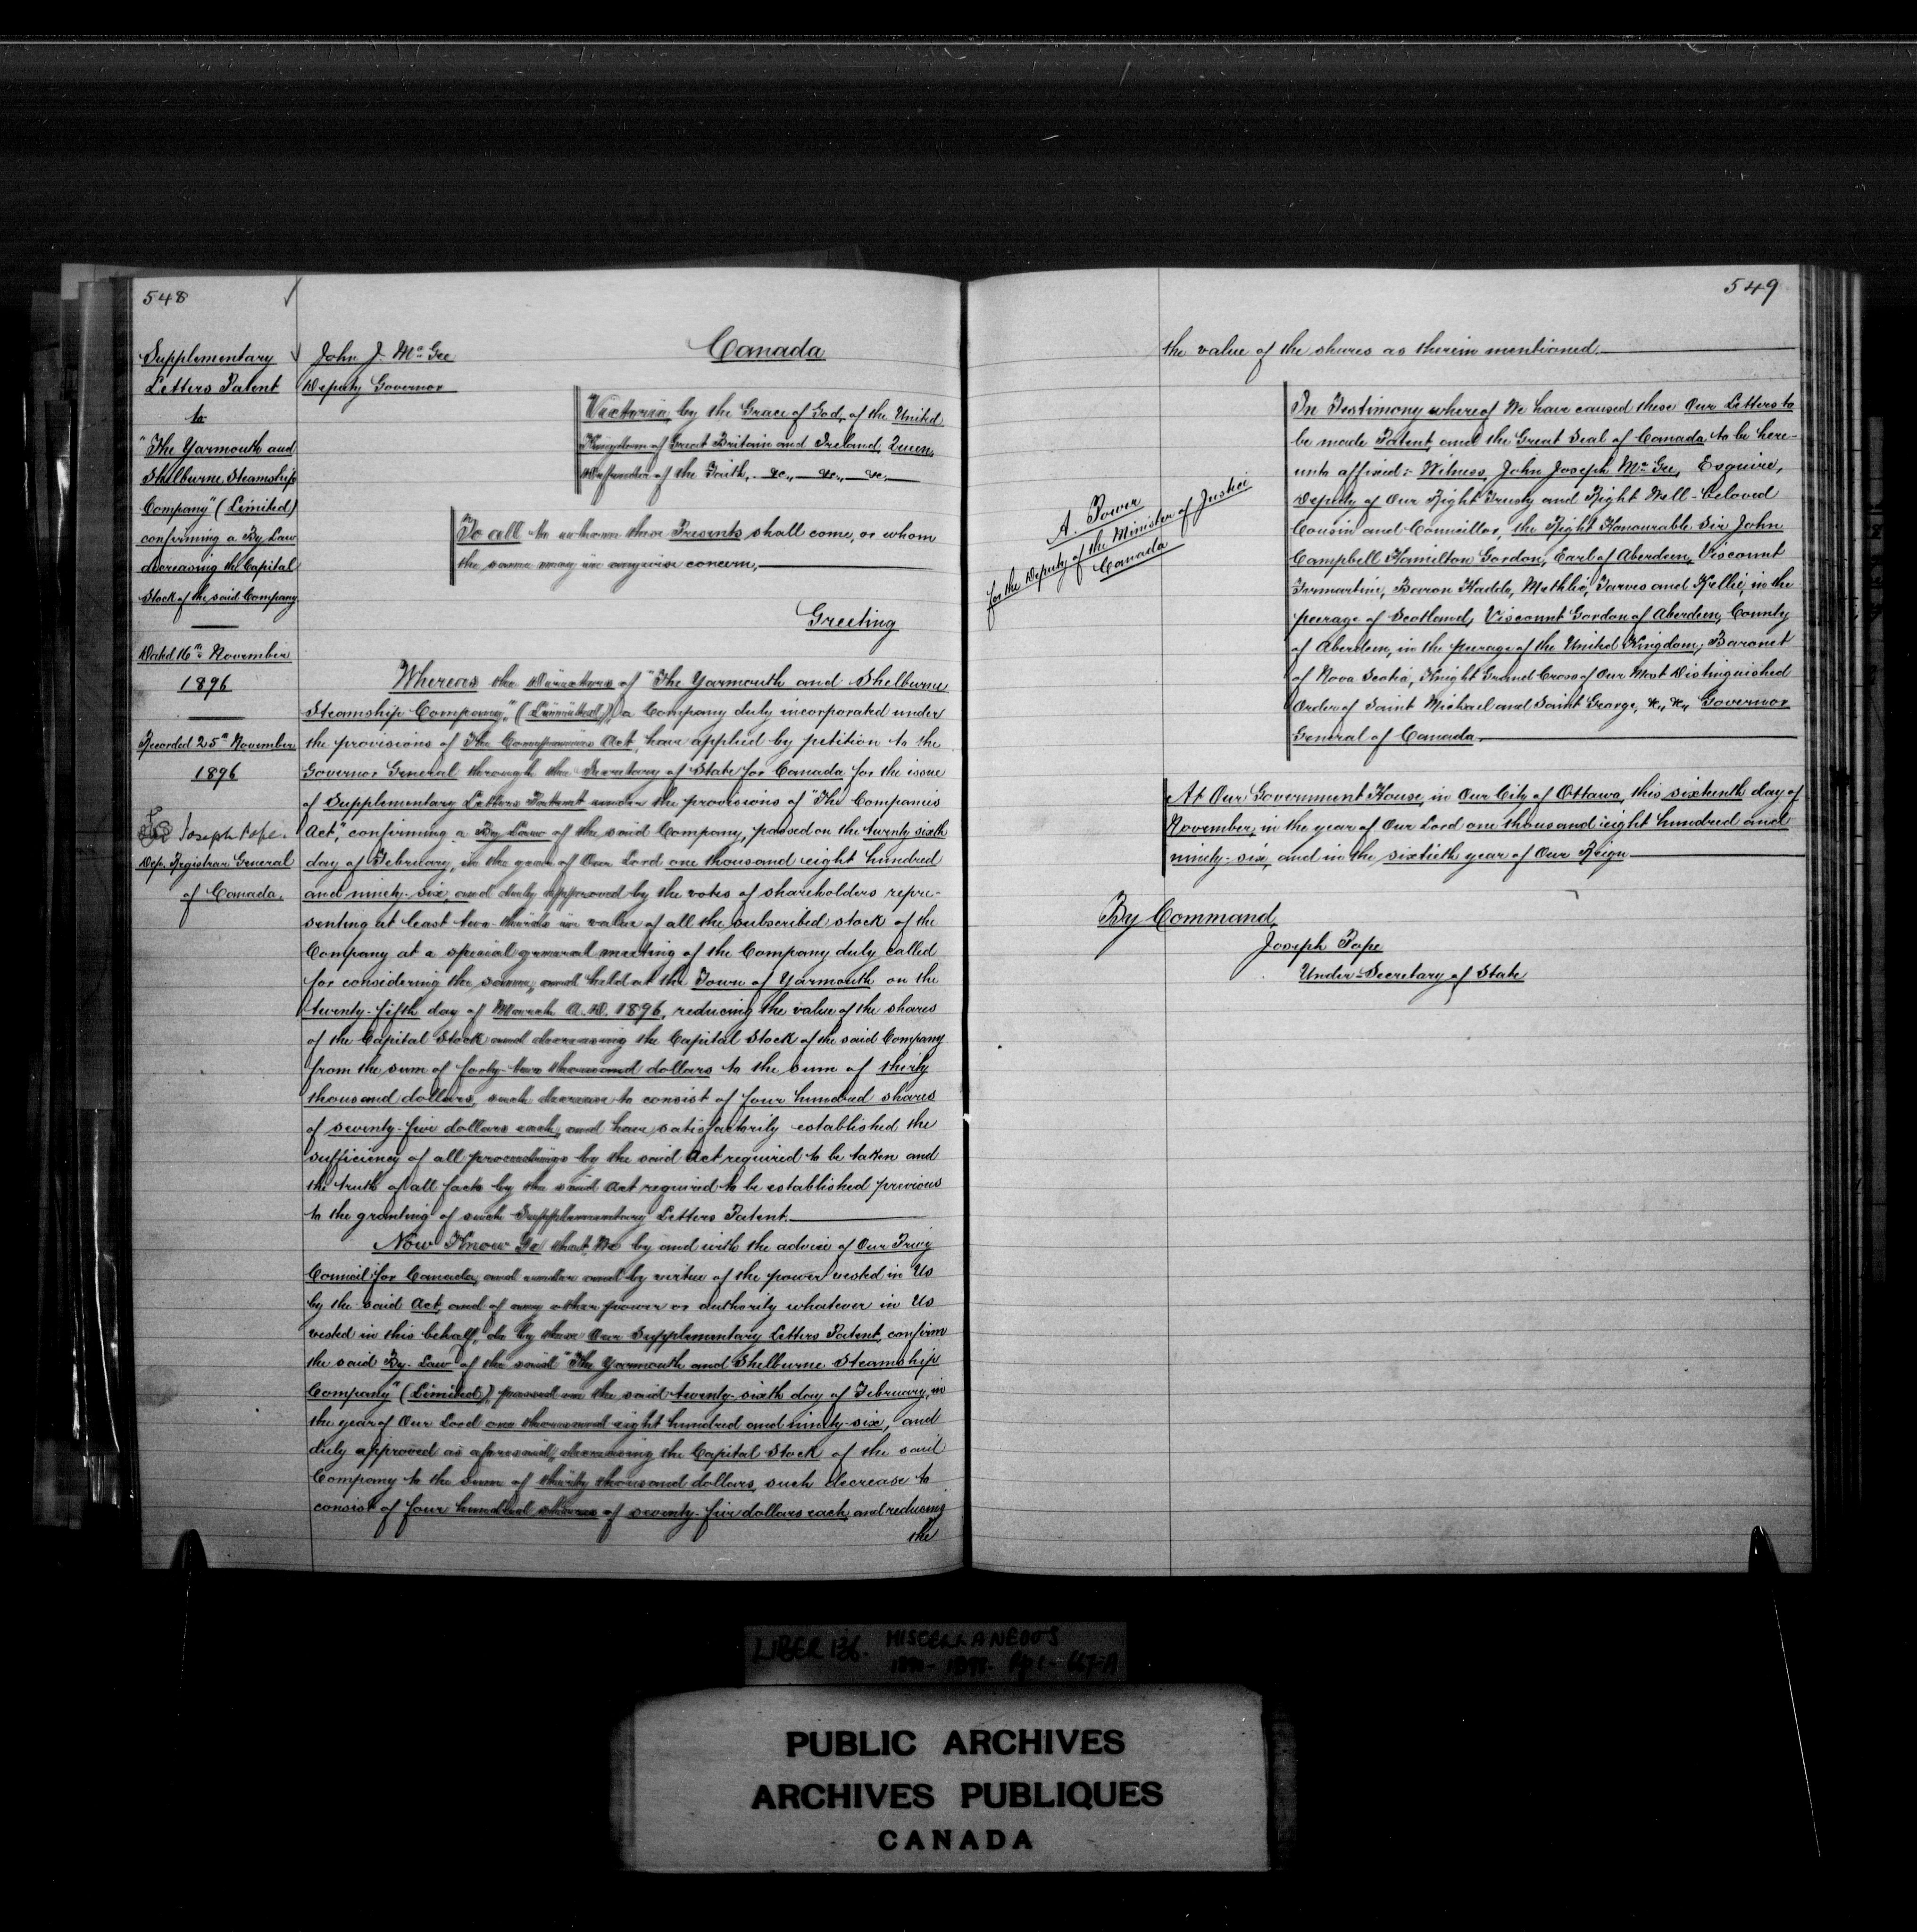 548
Supplementary
Letters Patent
to
"The Yarmouth and
Shelburne Steamship
Company" (Limited)
confirming a By Law
decreasing the Capital
Stock of the said Company
Dated 16th November
1896
Recorded 25th November
1896
Joseph Pope.
Dep. Registrar General
of Canada.
John J. McGee
Deputy Governor
Canada
Victoria, by the Grace of God, of the United
Kingdom of Great Britain and Ireland, Queen,
Defender of the Faith, &c., &c., &c.
To all to whom these Presents shall come, or whom
the same may in anywise concern,
Greeting
Whereas the Directors of "The Yarmouth and Shelburne
Steamship Company," (Limited), a Company duly incorporated under
the provisions of The Companies Act, have applied by petition to the
Governor General through the Secretary of State for Canada for the issue
of Supplementary Letters Patent under the provisions of "The Companies
Act," confirming a By Law of the said Company, passed on the twenty sixth
day of February, in the year of Our Lord one thousand eight hundred
and ninety-six, and duly approved by the votes of shareholders repre-
senting at least two-thirds in value of all the subscribed stock of the
Company at a special general meeting of the Company duly called
for considering the same, and held at the Town of Yarmouth on the
twenty-fifth day of March A.D. 1896, reducing the value of the shares
of the Capital Stock and decreasing the Capital Stock of the said Company
from the sum of forty-two thousand dollars to the sum of thirty
thousand dollars, such decrease to consist of four hundred shares
of seventy-five dollars each, and have satisfactorily established the
sufficiency of all proceedings by the said Act required to be taken and
the truth of all facts by the said Act required to be established previous
to the granting of such Supplementary Letters Patent.
Now Know Ye that We by and with the advice of Our Privy
Council for Canada, and under and by virtue of the power vested in Us
by the said Act, and of any other power or authority whatever in Us
vested in this behalf, do by these Our Supplementary Letters Patent, confirm
the said By-Law of the said "The Yarmouth and Shelburne Steamship
Company" (Limited), passed on the said twenty-sixth day of February, in
the year of Our Lord one thousand eight hundred and ninety-six, and
duly approved as aforesaid, decreasing the Capital Stock of the said
Company to the sum of thirty thousand dollars, such decrease to
consist of four hundred shares of seventy-five dollars each, and reducing
the
549
the value of the shares as therein mentioned.
A. Power
for the Deputy of the Minister of Justice
Canada
In Testimony whereof We have caused these Our Letters to
be made Patent, and the Great Seal of Canada to be here-
unto affixed:- Witness, John Joseph McGee, Esquire,
Deputy of Our Right Trusty and Right Well-beloved
Cousin and Councillor, the Right Honourable Sir John
Campbell Hamilton Gordon, Earl of Aberdeen, Viscount
Formartine, Baron Haddo, Methlic, Tarves and Kellie, in the
peerage of Scotland, Viscount Gordon of Aberdeen, County
of Aberdeen, in the peerage of the United Kingdom; Baronet
of Nova Scotia, Knight Grand Cross of Our Most Distinguished
Order of Saint Michael and Saint George, &c., &c., Governor
General of Canada.
At Our Government House, in Our City of Ottawa, this sixteenth day of
November, in the year of Our Lord one thousand eight hundred and
ninety-six, and in the sixtieth year of Our Reign
By Command,
Joseph Pope
Under-Secretary of State
LIBER 136. MISCELLANEOUS
PUBLIC ARCHIVES
ARCHIVES PUBLIQUES
CANADA